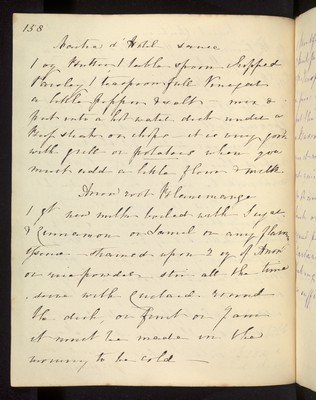 158
Maitre d'Hotel sauce
1 oz Butter 1 table spoon chopped
Parsley 1 teaspoonfull Vinegar
a little pepper & salt - mix &
put into a hot water dish under a
Beef steak or chops - it is very good
with grill or potatoes when you
must add a little flour & milk.
Arrow root Blancmange
1 qt new milk boiled with Sugar
& Cinnamon or Lemon or any flavor
- strained upon 2 oz of Arrow
or rice powder - stir all the time
serve with Custard round
the dish, or Fruit or Jam
it must be made in the
morning to be cold -